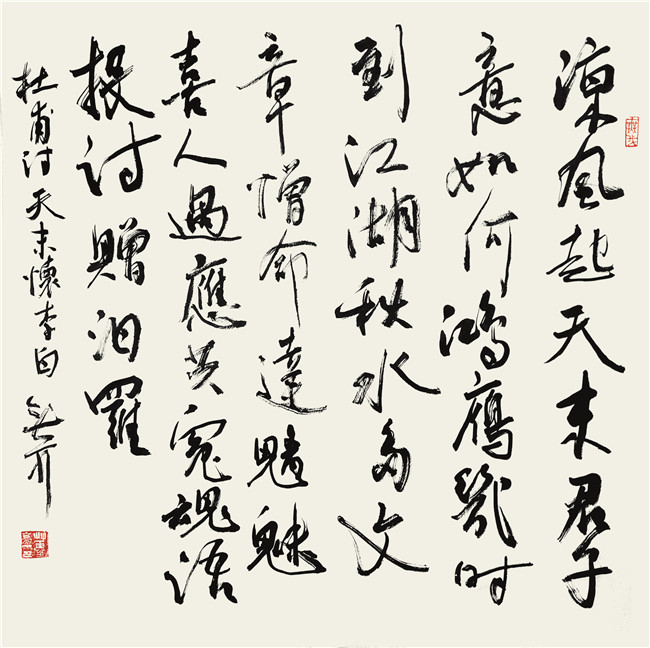 涼風起天末君子
意如何鴻鴈幾時
到江湖秋水多文
章憎命達魑魅
喜人過應共冤魂語
投詩贈汨羅
杜甫詩天末懷李白